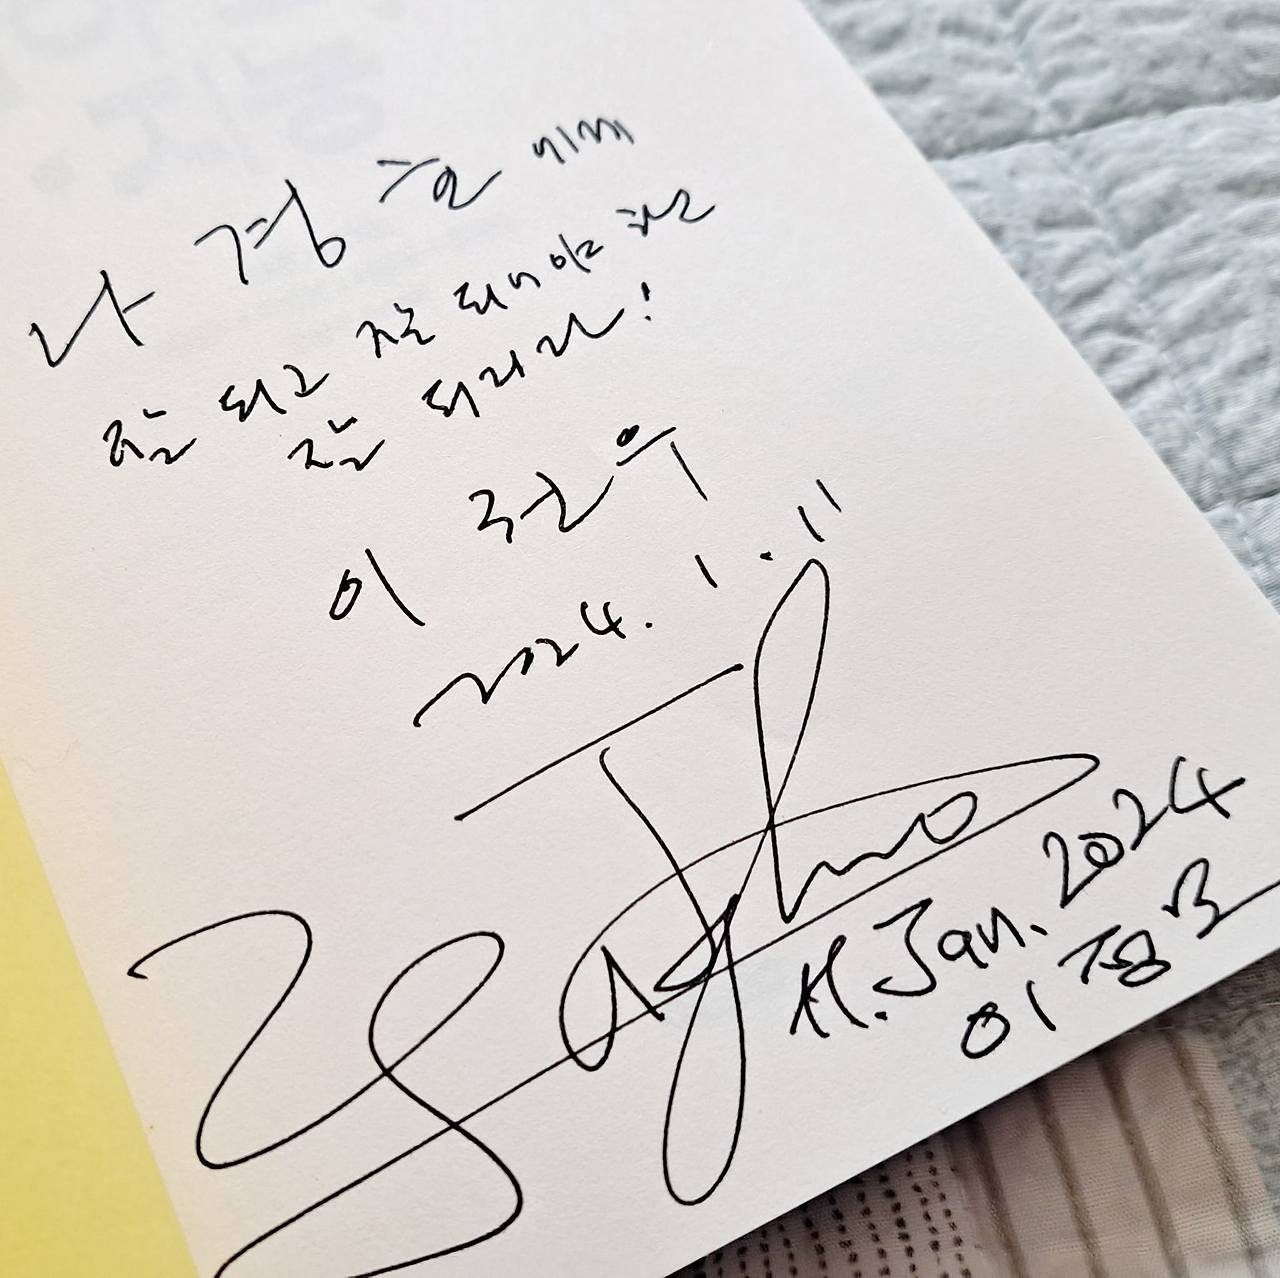 나 경호에게
잘 되고 잘 되어야 하고
잘 되리라!
이 근우
2024. 1. 11
11. Jan. 2024
이정호